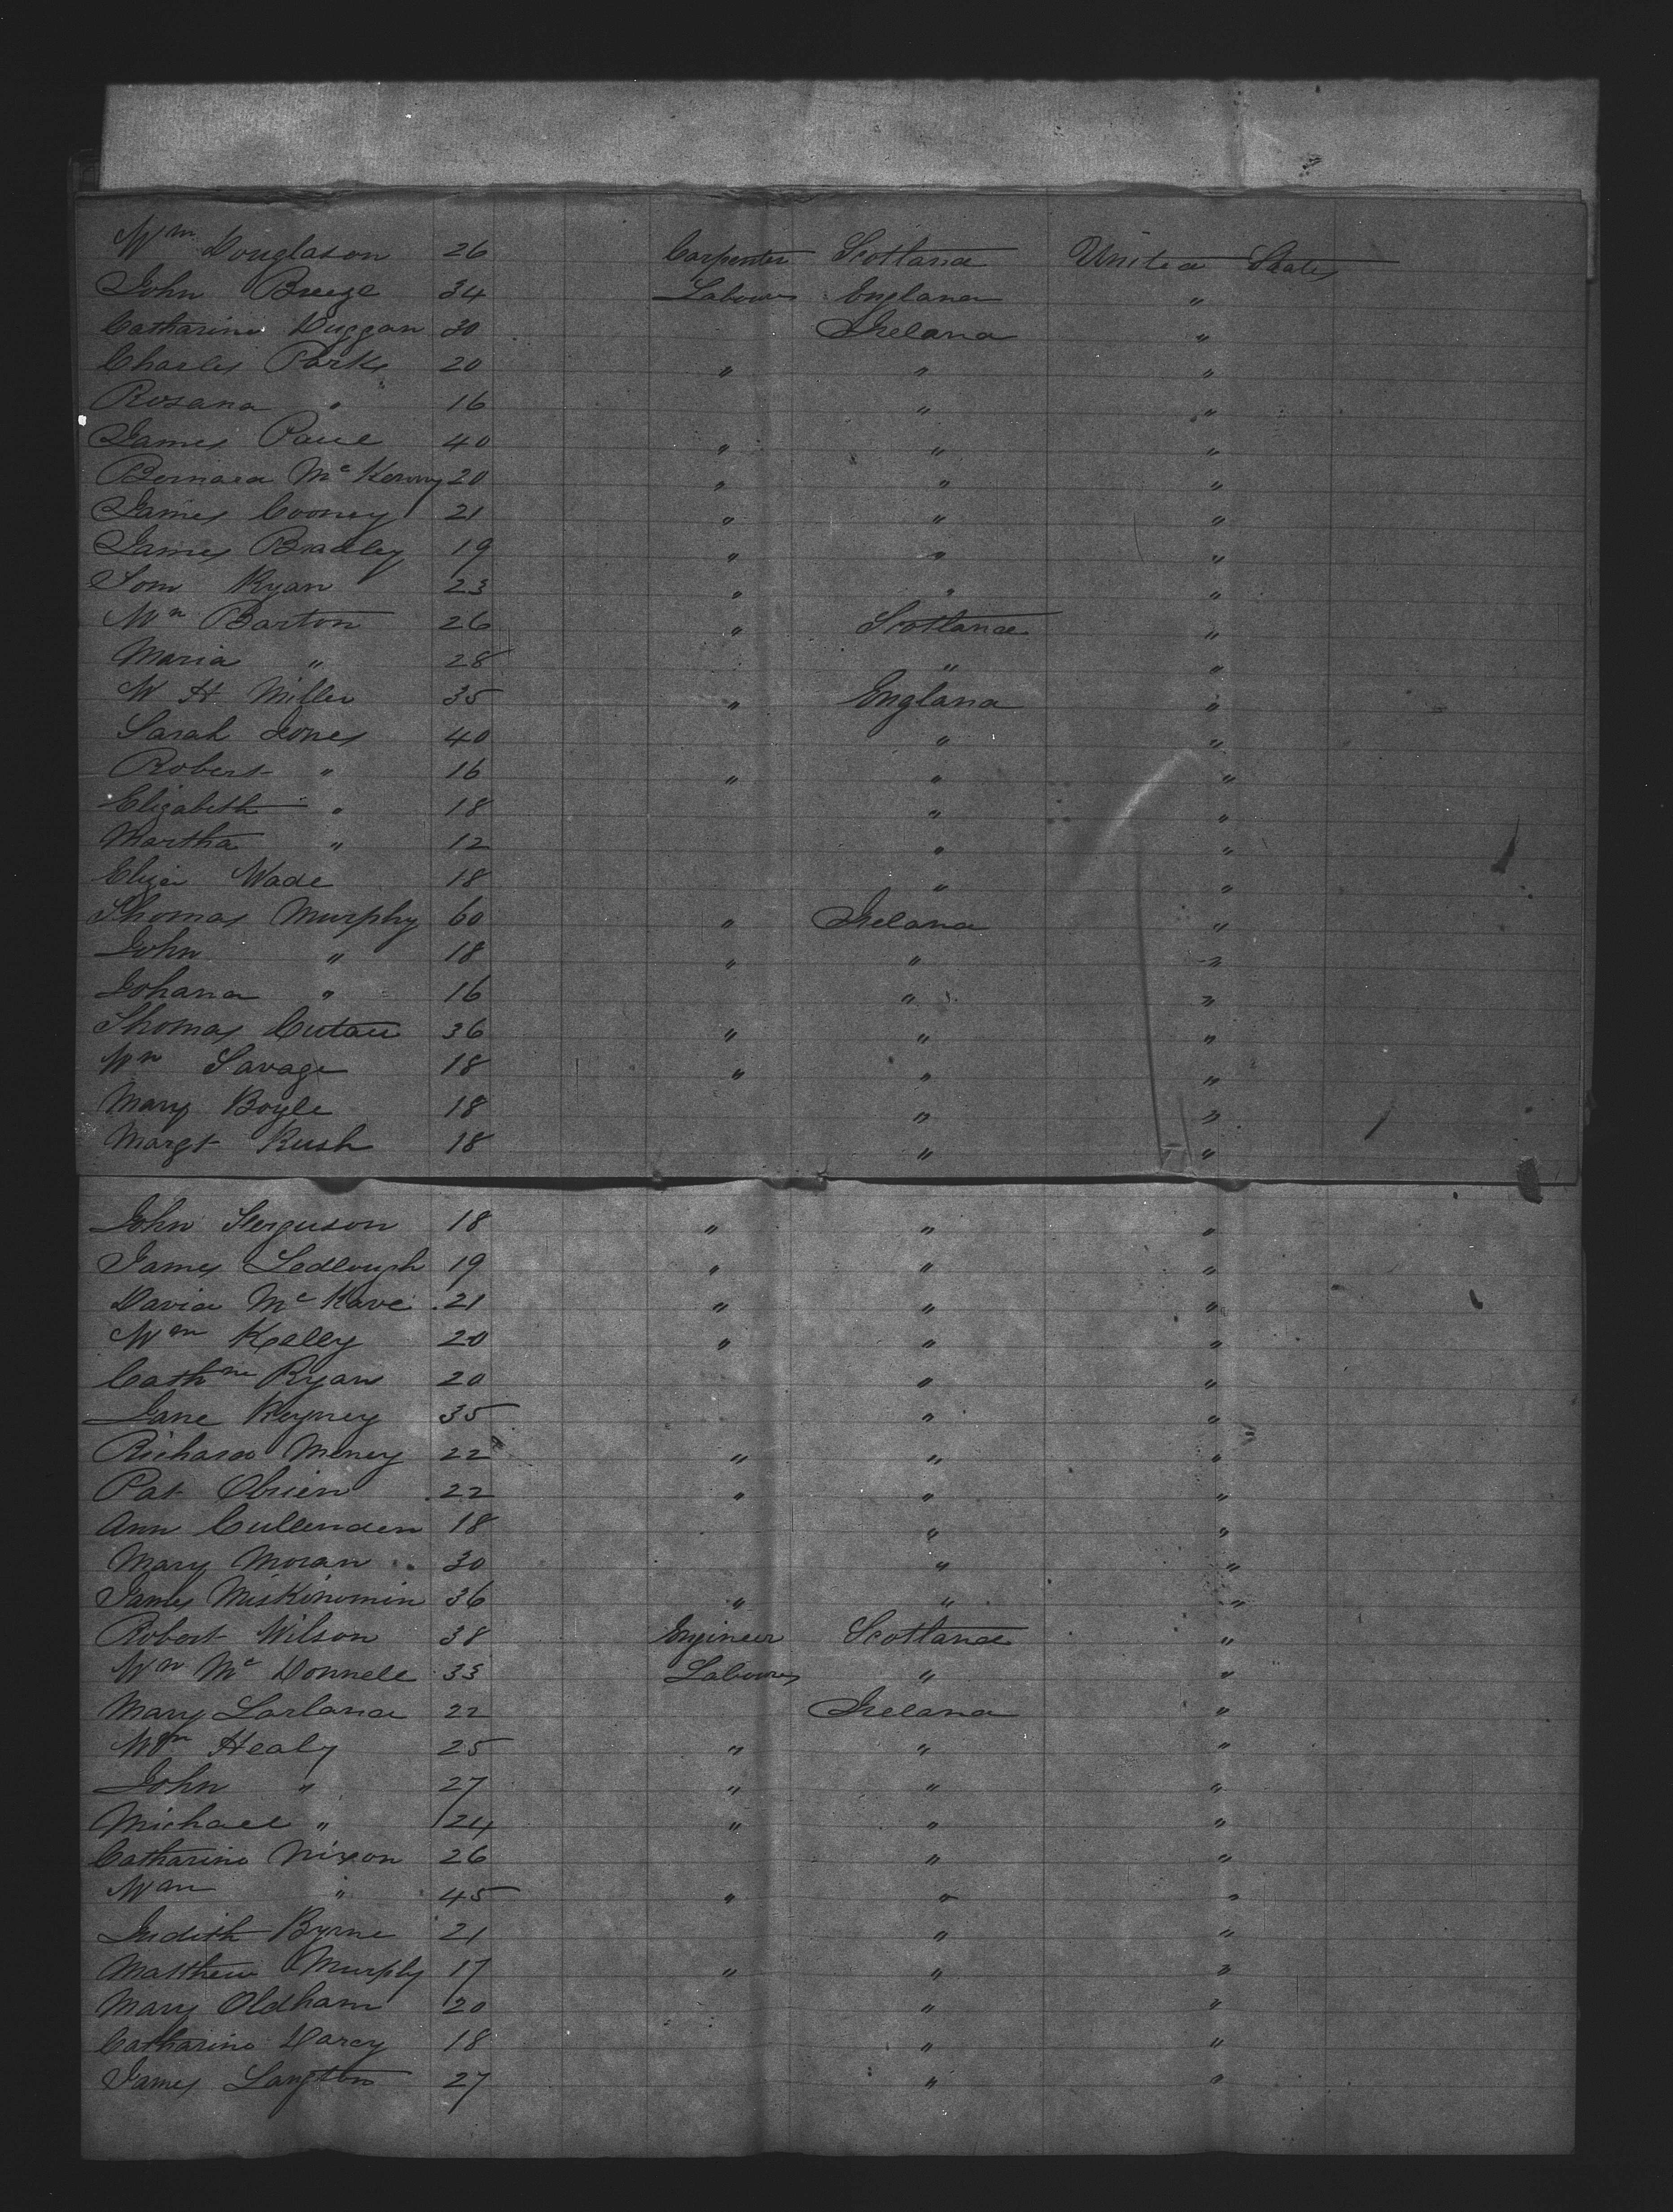 Wm Douglason 26 Carpenter Scotland United States
John Breeze 34 Labourer England "
Catharine Duggan 30 Ireland "
Charles Parks 20 " " "
Rosana " 16 " "
James Paul 40 " " "
Bernard Mc 20 " " "
James Cooney 21 " " "
James Bradley 19 " " "
Tom Ryan 23 " " "
Wm Barton 26 " Scotland "
Maria " 28 " "
W H Miller 35 " England "
Sarah Jones 40 " "
Robert " 16 " " "
Elizabeth " 18 " "
Martha " 12 " "
Eliza Wade 18 " "
Thomas Murphy 60 " Ireland "
John " 18 " " "
Johana " 16 " "
Thomas 36 " " "
Wm Savage 18 " " "
Mary Boyle 18 " "
Margt Rush 18 " "
John Ferguson 18 " " "
James 19 " " "
David Mc Kave 21 " " "
Wm Kelly 20 " " "
Cathne Ryan 20 " "
Jane 35 " "
Richard 22 " " "
Pat Obrien 22 " " "
Ann Cullenden 18 " "
Mary Moran 30 " "
James 36 " " "
Robert Wilson 38 Engineer Scotland "
Wm Mc Donnell 33 Labourer " "
Mary 22 Ireland "
Wm Healy 25 " " "
John " 27 " " "
Michael " 24 " " "
Catharine Nixon 26 " "
Wm " 45 " " "
Judith Byrne 21 " "
Matthew Murphy 17 " " "
Mary Oldham 20 " "
Catharine Darcy 18 " "
James Langton 27 " "